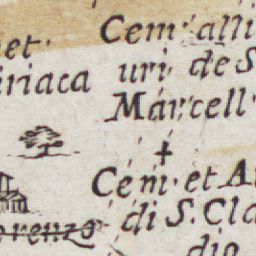 et.
riaca
Cem. alli
uri. de S
Marcell.
Cem. et A
di S. Cla
orenzo
dio